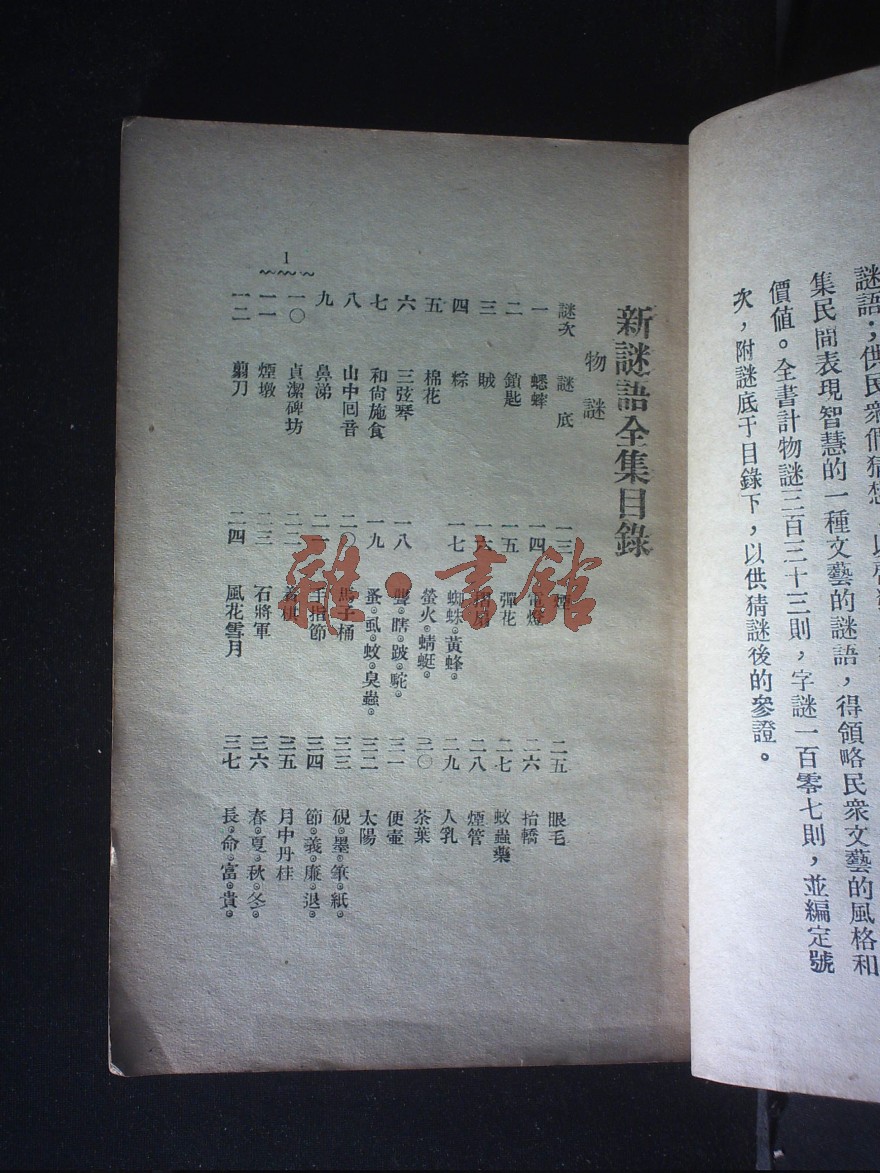 謎語；供民衆們猜想，以
集民間表現智慧的一種文藝的謎語，得領略民衆文藝的風格和
價值。全書計物謎三百三十三則，字謎一百零七則，並編定號
次，附謎底于目錄下，以供猜謎後的參證。
新謎語全集目錄
物謎
謎次 謎底
一 蟋蟀
二 鎖匙
三 賊
四 粽
五 棉花
六 三弦琴
七 和尙施食
八 山中囘音
九 鼻涕
一〇 貞潔碑坊
一一 煙墩
一二 翦刀
一三 煙
一四 電燈
一五 彈花
一六 摺扇
一七 蜘蛛。黃蜂。
螢火。蜻蜓。
一八 聾。瞎。跛。駝。
一九 蚤。虱。蚊。臭蟲。
二〇 馬子桶
二一 手指節
二二 着棋
二三 石將軍
二四 風花雪月
二五 眼毛
二六 抬轎
二七 蚊蟲藥
二八 煙管
二九 人乳
三〇 茶葉
三一 便壷
三二 太陽
三三 硯。墨。筆。紙。
三四 節。義。廉。退。
三五 月中丹桂
三六 春。夏。秋。冬。
三七 長。命。富。貴。
1
雜·書館